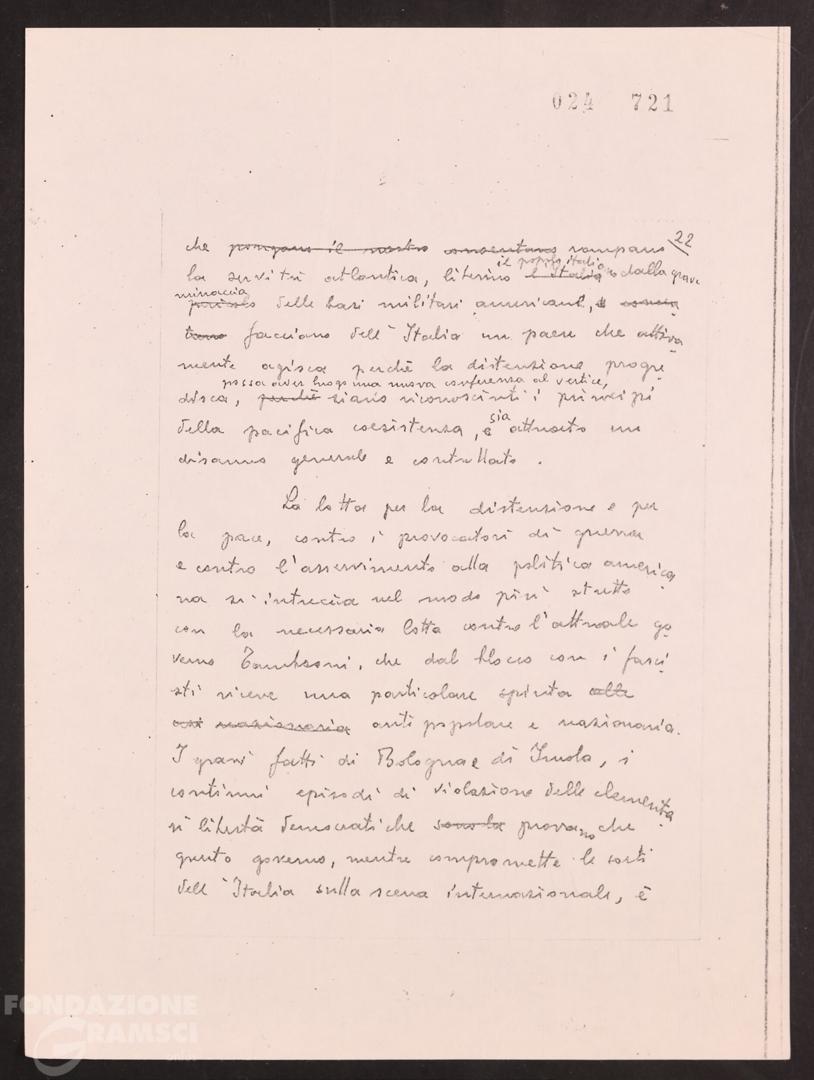 024 721
22
che pongano il nostro consentano rompano
il popolo italiano
la servitù atlantica, liberino l'Italia dalla grave
minaccia
pericolo delle basi militari americane, e
facciano dell'Italia un paese che attiva
mente agisca perché la distensione progre
possa aver luogo una nuova conferenza al vertice,
disca, perché siano riconosciuti i principi
sia
della pacifica coesistenza, e attuato un
disarmo generale e controllato.
La lotta per la distensione e per
la pace, contro i provocatori di guerra
e contro l'asservimento alla politica america
na si intreccia nel modo più stretto
con la necessaria lotta contro l'attuale go
verno Tambroni, che dal blocco con i fasci
sti riceve una particolare spinta alle
reazionaria anti popolare e reazionaria.
I gravi fatti di Bologna e di Imola, i
continui episodi di violazione delle elementa
ri libertà democratiche sono la provano che
questo governo, mentre compromette le sorti
dell'Italia sulla scena internazionale, è
FONDAZIONE
GRAMSCI